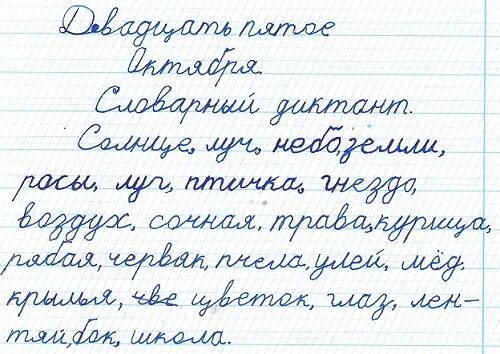 Двадцать пятое
Октября.
Словарный диктант.
Солнце, луч, небо, земли,
росы, луч, птичка, гнездо,
воздух, сочная, трава, курица,
рябая, червяк, пчела, улей, мёд.
крылья, чве цветок, глаз, лен-
тяй, бок, школа.